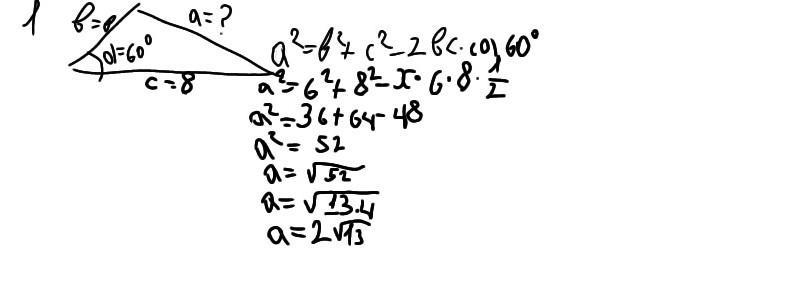 1
в=6 a=?
α=60°
c=8
a²=в²+c²-2вc·cos60°
a²=6²+8²-2·6·8·1/2
a²=36+64-48
a²=52
a=√52
a=√13·4
a=2√13